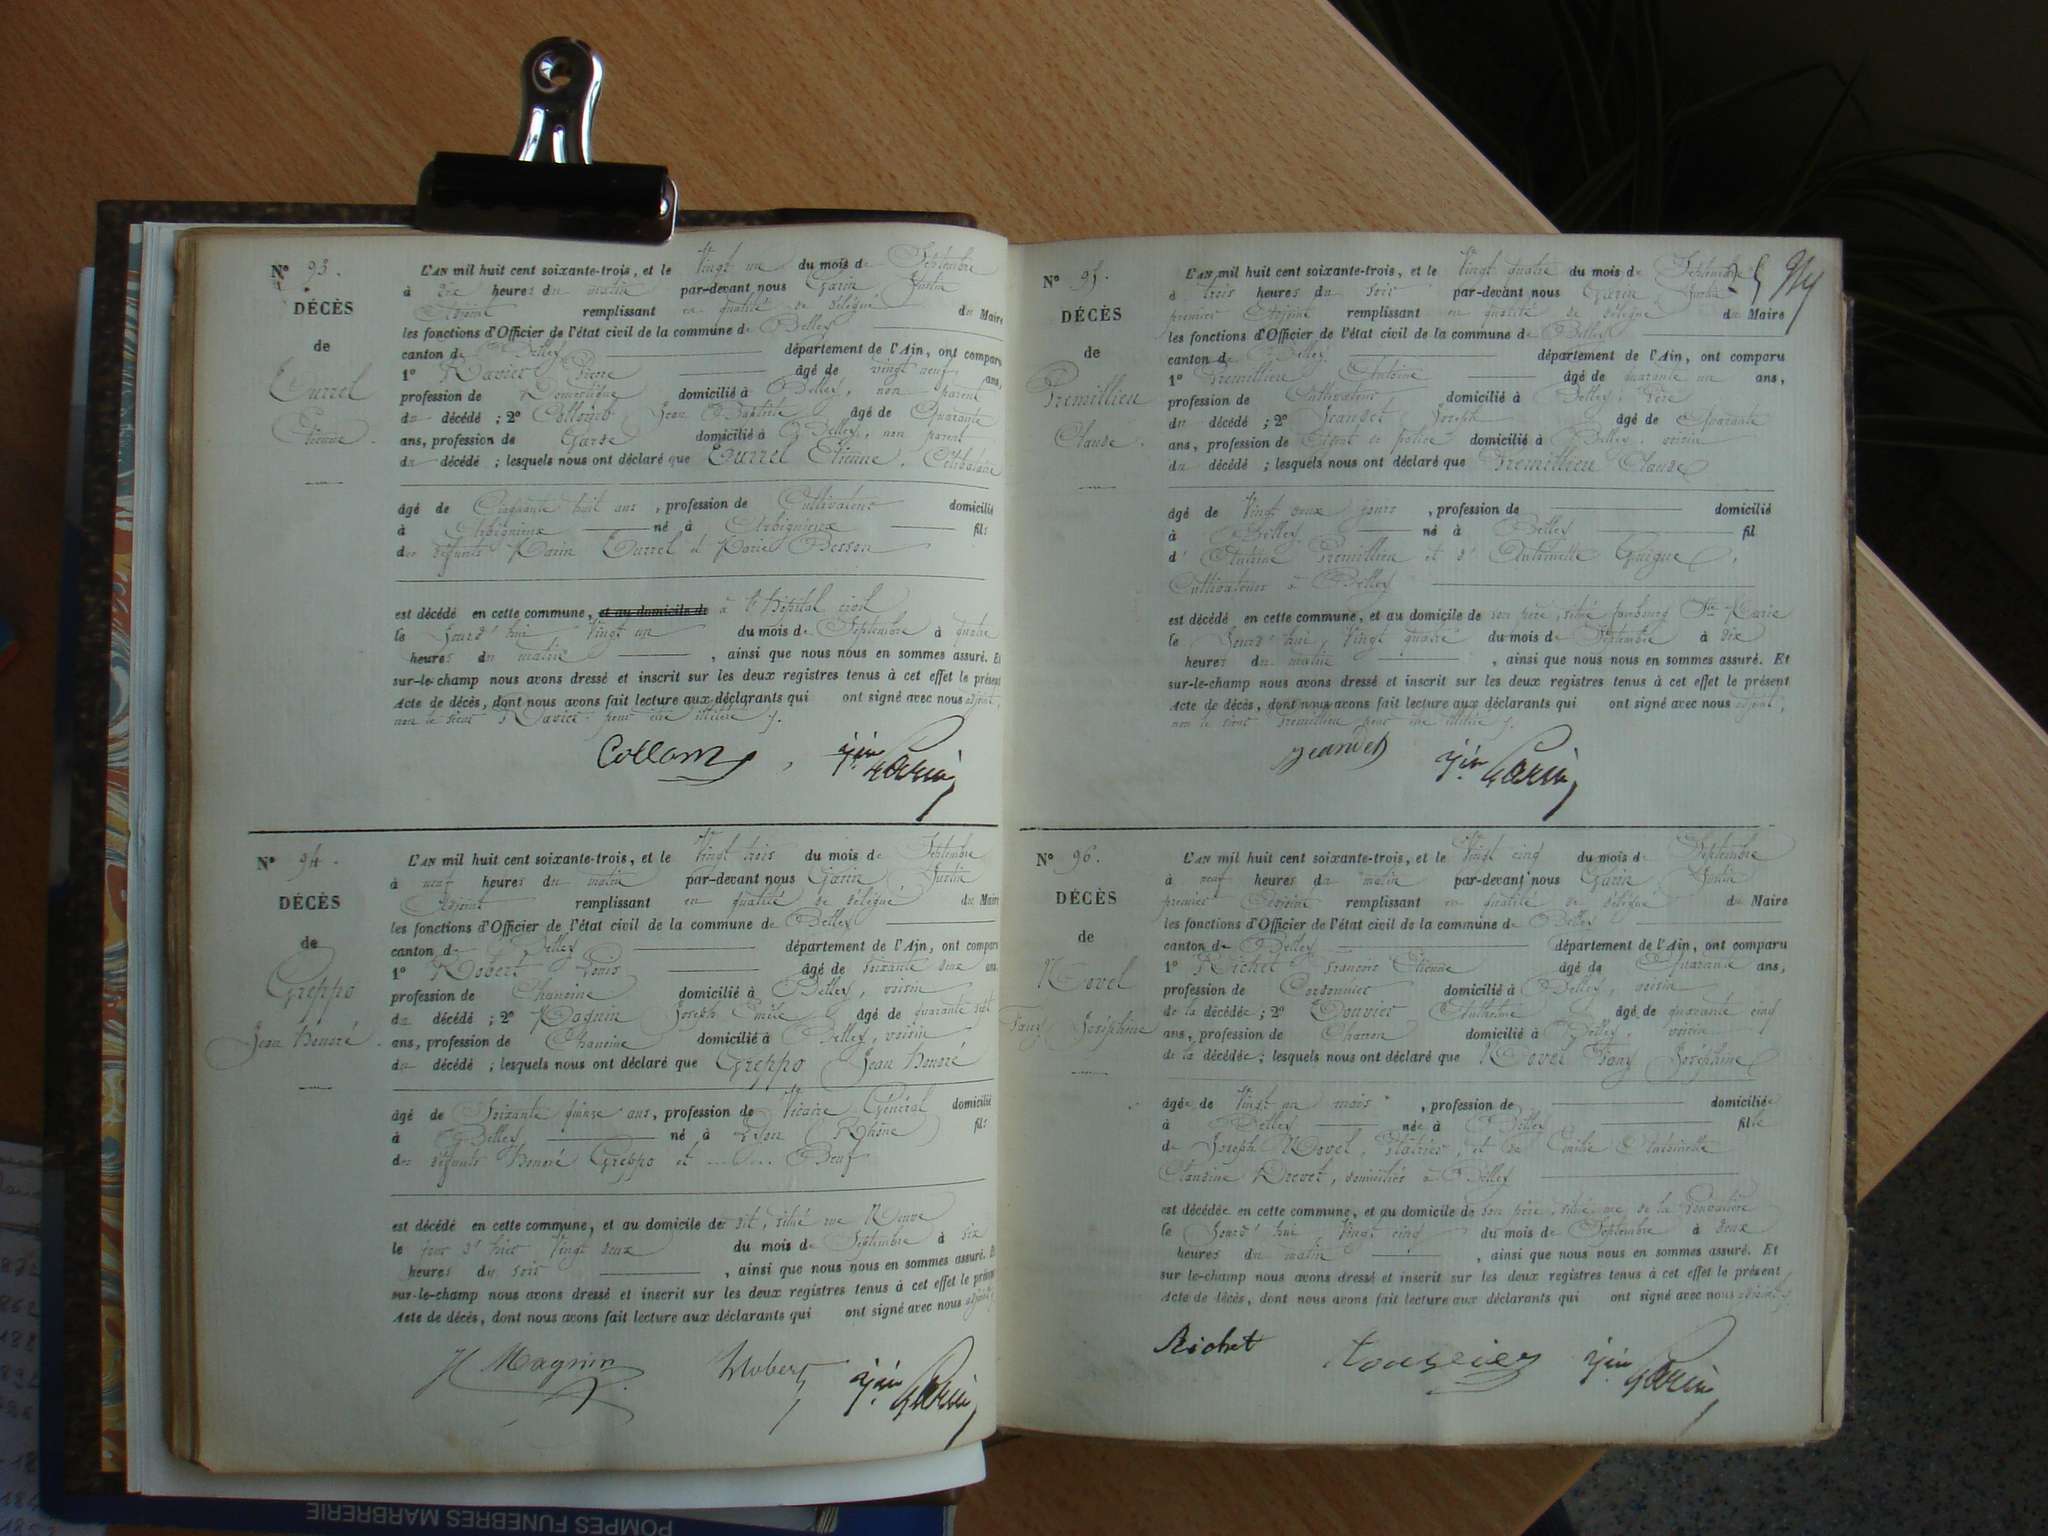 N° 93.
DÉCÈS
de
Turrel
Etienne.
L'AN mil huit cent soixante-trois, et le vingt un du mois de Septembre
à dix heures du matin par-devant nous Garin Justin
Adjoint remplissant en qualité de délégué du Maire
les fonctions d'Officier de l'état civil de la commune de Belley
canton de Belley département de l'Ain, ont comparu
1° Ravier Pierre âgé de vingt neuf ans,
profession de Domestique domicilié à Belley, non parent
du décédé ; 2° Collomb Jean Baptiste âgé de Quarante
ans, profession de Garde domicilié à Belley, non parent
du décédé ; lesquels nous ont déclaré que Turrel Etienne, Célibataire
âgé de Cinquante huit ans, profession de Cultivateur domicilié
à Arbignieu né à Arbignieu fils
des défunts Marin Turrel et Marie Besson
est décédé en cette commune, et au domicile de à l'Hôpital civil
le Jourd'hui vingt un du mois de Septembre à quatre
heures du matin , ainsi que nous nous en sommes assuré. Et
sur-le-champ nous avons dressé et inscrit sur les deux registres tenus à cet effet le présent
Acte de décès, dont nous avons fait lecture aux déclarants qui ont signé avec nous adjoint,
non le sieur Ravier pour être illitéré
Collomb
Jin Garin
N° 94.
DÉCÈS
de
Greppo
Jean Honoré.
L'AN mil huit cent soixante-trois, et le vingt trois du mois de Septembre
à neuf heures du matin par-devant nous Garin Justin
Adjoint remplissant en qualité de délégué du Maire
les fonctions d'Officier de l'état civil de la commune de Belley
canton de Belley département de l'Ain, ont comparu
1° Robert Louis âgé de soixante deux ans
profession de Chanoine domicilié à Belley, voisin
du décédé ; 2° Magnin Joseph Emile âgé de quarante sept
ans, profession de Chanoine domicilié à Belley, voisin
du décédé ; lesquels nous ont déclaré que Greppo Jean Honoré
âgé de Soixante quinze ans, profession de Vicaire Général domicilié
à Belley né à Lyon (Rhône) fils
des défunts Honoré Greppo et ........ Beuf
est décédé en cette commune, et au domicile de dit, situé rue Neuve
le jour d'hier vingt deux du mois de Septembre à six
heures du soir , ainsi que nous nous en sommes assuré. Et
sur-le-champ nous avons dressé et inscrit sur les deux registres tenus à cet effet le présent
Acte de décès, dont nous avons fait lecture aux déclarants qui ont signé avec nous adjoint
Magnin
Robert
Jin Garin
N° 95.
DÉCÈS
de
Premillieu
Claude.
L'AN mil huit cent soixante-trois, et le vingt quatre du mois de Septembre
à trois heures du soir par-devant nous Garin Justin
premier Adjoint remplissant en qualité de délégué du Maire
les fonctions d'Officier de l'état civil de la commune de Belley
canton de Belley département de l'Ain, ont comparu
1° Premillieu Antoine âgé de quarante un ans,
profession de Cultivateur domicilié à Belley, Père
du décédé ; 2° Jeandet Joseph âgé de Quarante
ans, profession de Agent de police domicilié à Belley, voisin
du décédé ; lesquels nous ont déclaré que Premillieu Claude
âgé de vingt deux jours , profession de domicilié
à Belley né à Belley fil
d'Antoine Premillieu et d'Antoinette Guigue,
Cultivateurs à Belley
est décédé en cette commune, et au domicile de son père, situé faubourg Ste Marie
le Jourd'hui, vingt quatre du mois de Septembre à dix
heures du matin , ainsi que nous nous en sommes assuré. Et
sur-le-champ nous avons dressé et inscrit sur les deux registres tenus à cet effet le présent
Acte de décès, dont nous avons fait lecture aux déclarants qui ont signé avec nous adjoint,
non le sieur Premillieu pour être illitéré
Jeandet
Jin Garin
N° 96.
DÉCÈS
de
Novel
Fany Joséphine
L'AN mil huit cent soixante-trois, et le vingt cinq du mois de Septembre
à neuf heures du matin par-devant nous Garin Justin
premier Adjoint remplissant en qualité de délégué du Maire
les fonctions d'Officier de l'état civil de la commune de Belley
canton de Belley département de l'Ain, ont comparu
1° Richet François Etienne âgé de Quarante ans,
profession de Cordonnier domicilié à Belley, voisin
de la décédée ; 2° Anthelme âgé de quarante cinq
ans, profession de Charron domicilié à Belley, voisin
de la décédée ; lesquels nous ont déclaré que Novel Fany Joséphine
âgée de vingt un mois , profession de domiciliée
à Belley née à Belley fille
de Joseph Novel, Plâtrier, et de Emilie Antoinette
Claudine Drevet, domiciliés à Belley
est décédée en cette commune, et au domicile de son père, situé rue de la
le Jourd'hui vingt cinq du mois de Septembre à deux
heures du matin , ainsi que nous nous en sommes assuré. Et
sur-le-champ nous avons dressé et inscrit sur les deux registres tenus à cet effet le présent
Acte de décès, dont nous avons fait lecture aux déclarants qui ont signé avec nous adjoint
Richet
Jin Garin
POMPES FUNEBRES MARBRERIE